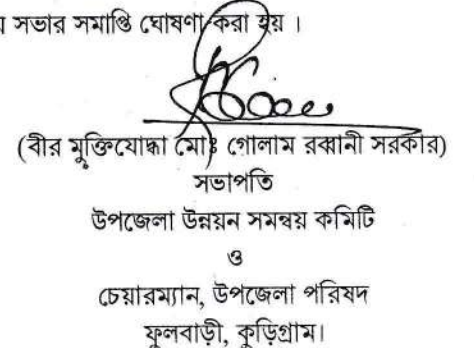 সভার সমাপ্তি ঘোষণা করা হয় ।
(বীর মুক্তিযোদ্ধা মোঃ গোলাম রব্বানী সরকার)
সভাপতি
উপজেলা উন্নয়ন সমন্বয় কমিটি
ও
চেয়ারম্যান, উপজেলা পরিষদ
ফুলবাড়ী, কুড়িগ্রাম।